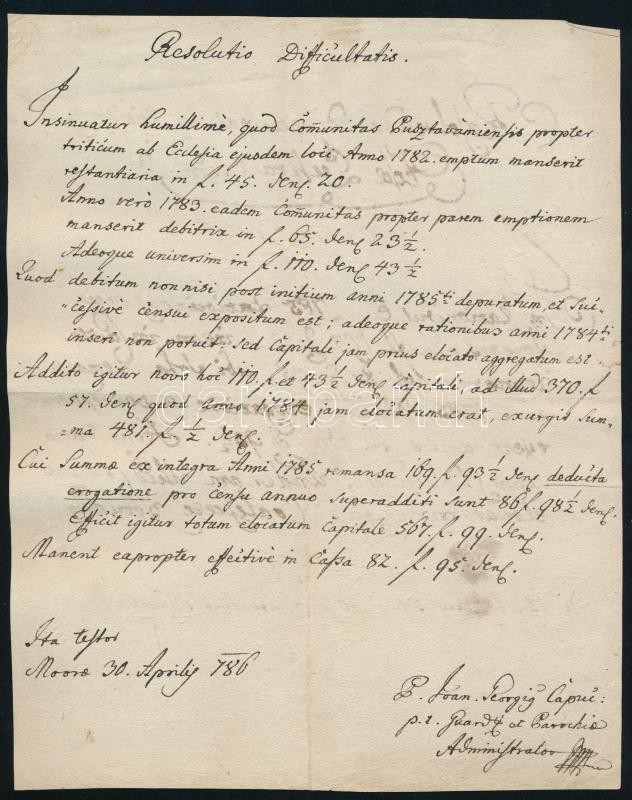 Resolutio Difficultatis.
Insinuatur humillimè, quod Com̃unitas Pusztavámiensis propter
triticum ab Ecclesia ejusdem loci Anno 1782. emptum manserit
restantiaria in f. 45. den. 20.
Anno verò 1783. eadem Com̃unitas propter parem emptionem
manserit debitrix in f. 65. den. 23 1/2.
Adeoque universim in f. 110. den. 43 1/2
Quod debitum nonnisi post initium anni 1785ti depuratum, et Suc=
=cessivè censui expositum est; adeoque rationibus anni 1784ti
inseri non potuit. Sed Capitali jam prius elocato aggregatum est.
Addito igitur novo hoc 110. f. et 43 1/2 den. capitali, ad illud 370. f.
57. den. quod anno 1784 jam elocatum erat, exurgit Sum=
=ma 481. f. 1/2 den.
Cui Summæ ex integra Anni 1785 remansa 169. f. 93 1/2 den. deducta
erogatione, pro censu annuo superadditi sunt 86 f. 98 1/2 den.
Efficit igitur totum elocatum Capitale 567. f. 99. den.
Manent eapropter effectivè in Cassa 82. f. 95. den.
Ita testor
Mooræ 30. Aprilis 786
P. Joan. Georgig Capuc:
p. t. Guard. et Parochiæ
Administrator
darabanth